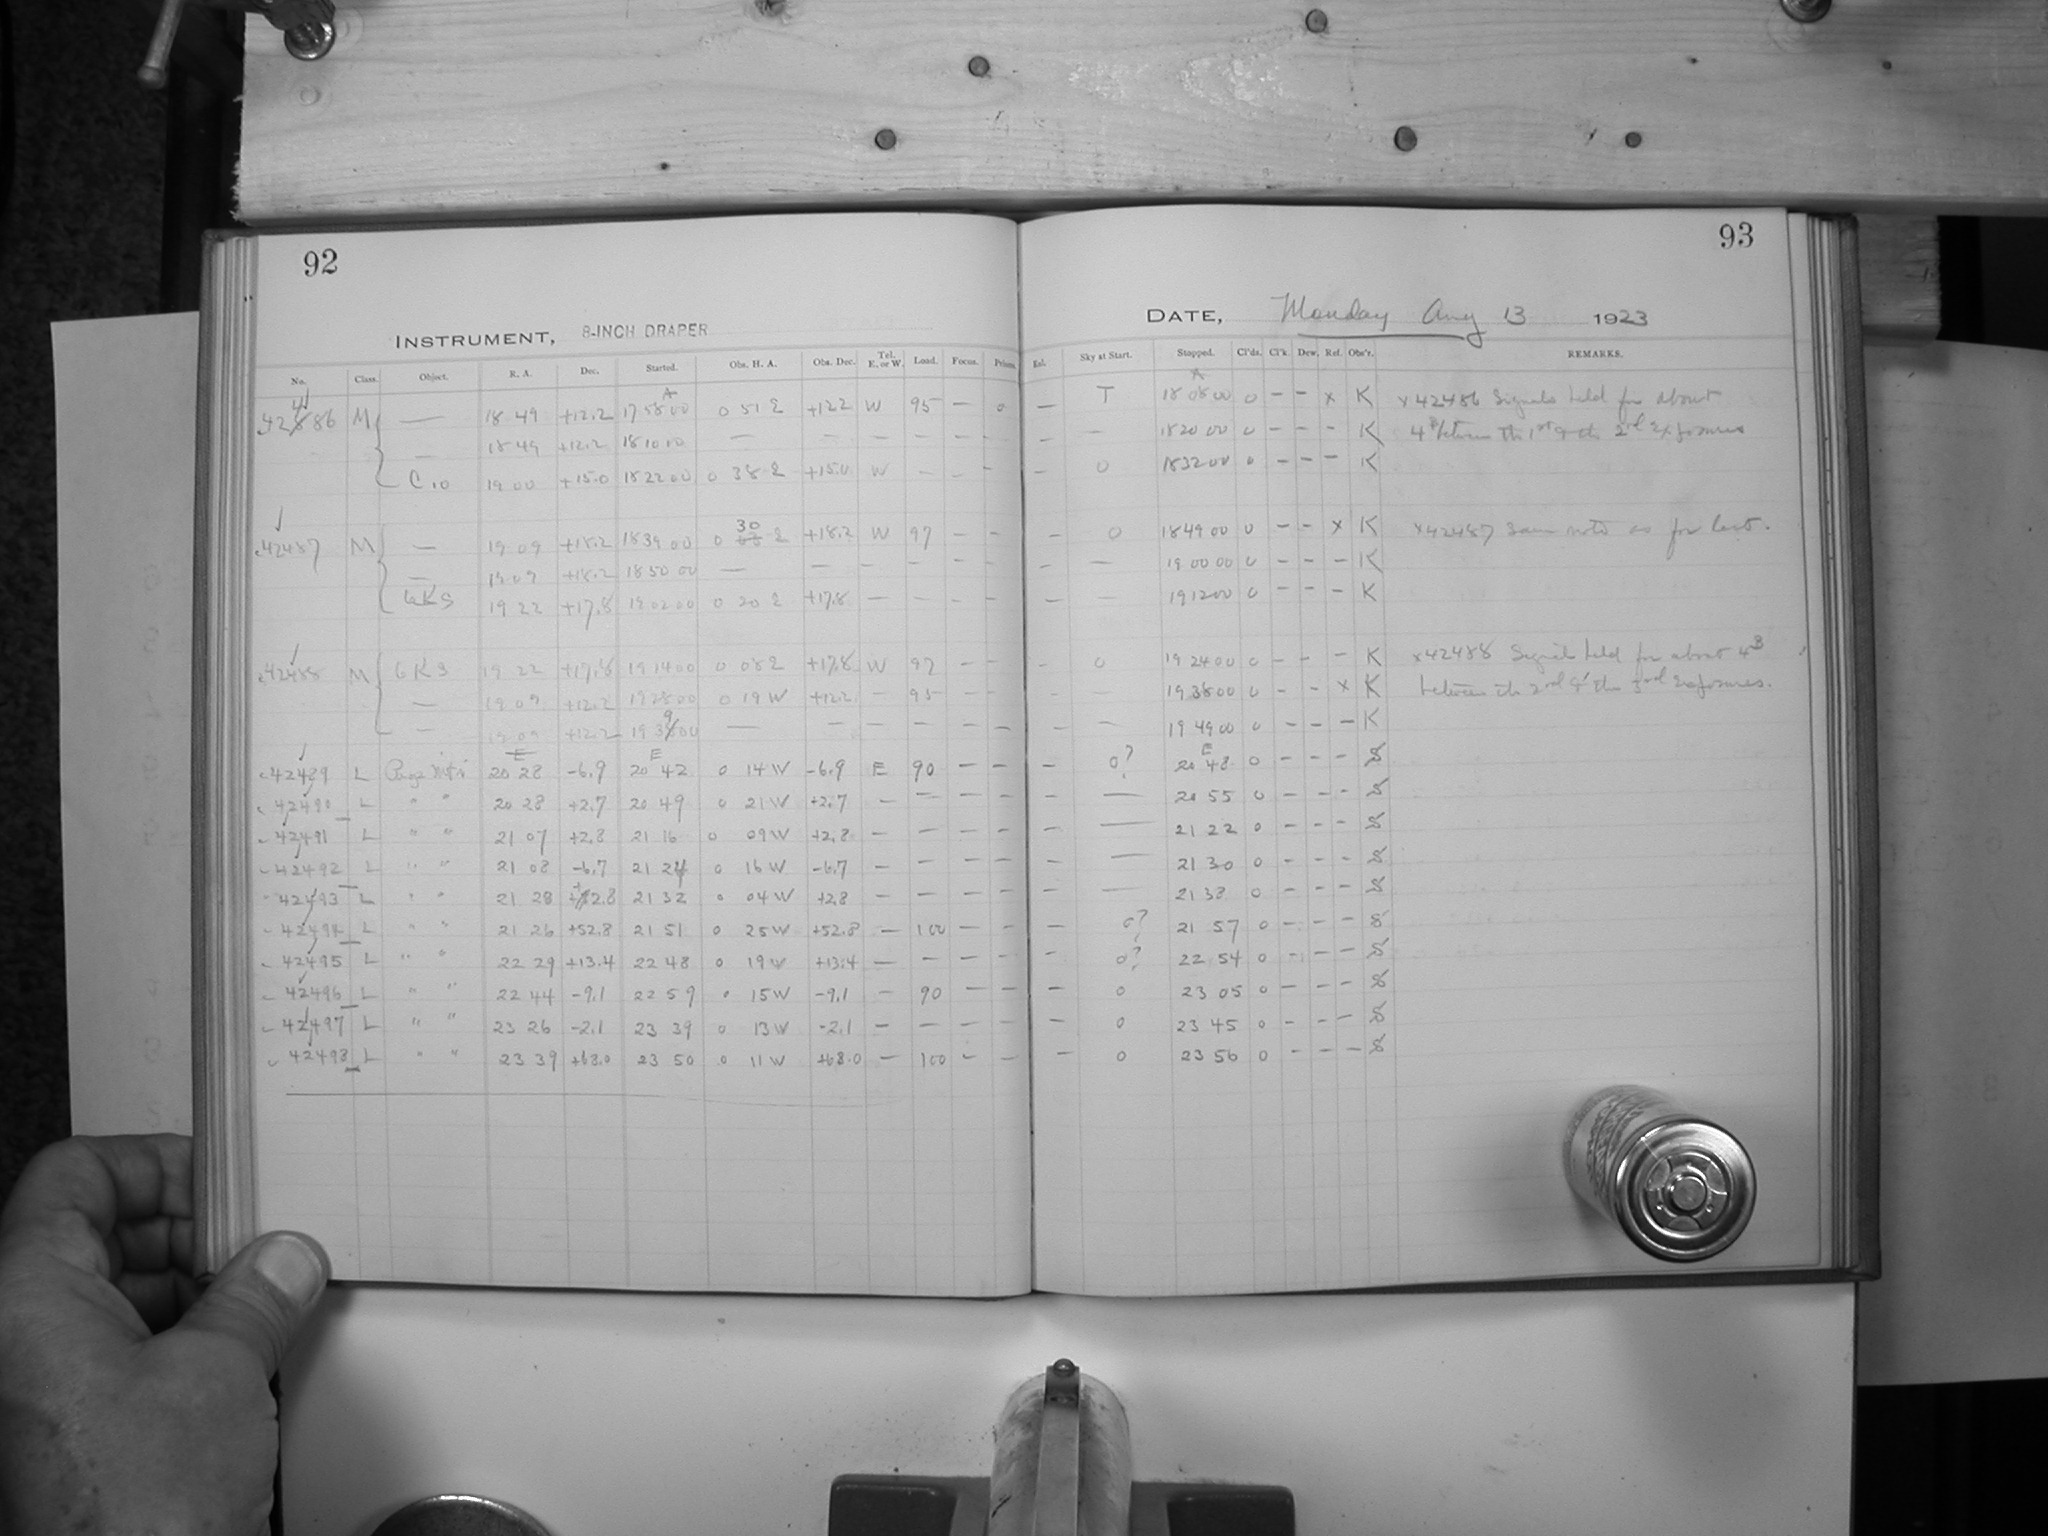 92
INSTRUMENT, 8-INCH DRAPER
No. Class. Object. R. A. Dec. Started. Obs. H. A. Obs. Dec. Tel. E. or W. Load. Focus. Prisms.
42486 M — 18 49 +12.2 A 17 58 00 0 51 E +12.2 W 95 — 0
— 18 49 +12.2 18 10 00 — — — — — —
C10 19 00 +15.0 18 22 00 0 38 E +15.0 W — — —
42487 M — 19 09 +18.2 18 39 00 0 30 E +18.2 W 97 — —
— 19 09 +18.2 18 50 00 — — — — — —
6KS 19 22 +17.8 19 02 00 0 20 E +17.8 — — — —
42488 M 6KS 19 22 +17.8 19 14 00 0 08 E +17.8 W 97 — —
— 19 09 +12.2 19 28 00 0 19 W +12.2 — 95 — —
— 19 09 +12.2 19 39 00 — — — — — —
42489 L 20 28 -6.9 E 20 42 0 14 W -6.9 E 90 — —
42490 L " " 20 28 +2.7 20 49 0 21 W +2.7 — — — —
42491 L " " 21 07 +2.8 21 16 0 09 W +2.8 — — — —
42492 L " " 21 08 -6.7 21 24 0 16 W -6.7 — — — —
42493 L " " 21 28 +2.8 21 32 0 04 W +2.8 — — — —
42494 L " " 21 26 +52.8 21 51 0 25 W +52.8 — 100 — —
42495 L " " 22 29 +13.4 22 48 0 19 W +13.4 — — — —
42496 L " " 22 44 -9.1 22 59 0 15 W -9.1 — 90 — —
42497 L " " 23 26 -2.1 23 39 0 13 W -2.1 — — — —
42498 L " " 23 39 +68.0 23 50 0 11 W +68.0 — 100 — —
93
DATE, Monday Aug 13 1923
Enl. Sky at Start. Stopped. Cl'ds. Cl'k. Dew. Ref. Obs'r. REMARKS.
— T A 18 08 00 0 — — x K x 42486 Signals held for about
— — 18 20 00 0 — — — K 4 between the 1st & the 2nd Exposures
— 0 18 32 00 0 — — — K
— 0 18 49 00 0 — — x K x 42487 Same note as for last.
— — 19 00 00 0 — — — K
— — 19 12 00 0 — — — K
— 0 19 24 00 0 — — — K x 42488 Signals held for about 4
— — 19 38 00 0 — — x K between the 2nd & the 3rd Exposures.
— — 19 49 00 0 — — — K
— 0? E 20 48 0 — — — S
— — 20 55 0 — — — S
— — 21 22 0 — — — S
— — 21 30 0 — — — S
— — 21 38 0 — — — S
— 0? 21 57 0 — — — S
— 0? 22 54 0 — — — S
— 0 23 05 0 — — — S
— 0 23 45 0 — — — S
— 0 23 56 0 — — — S